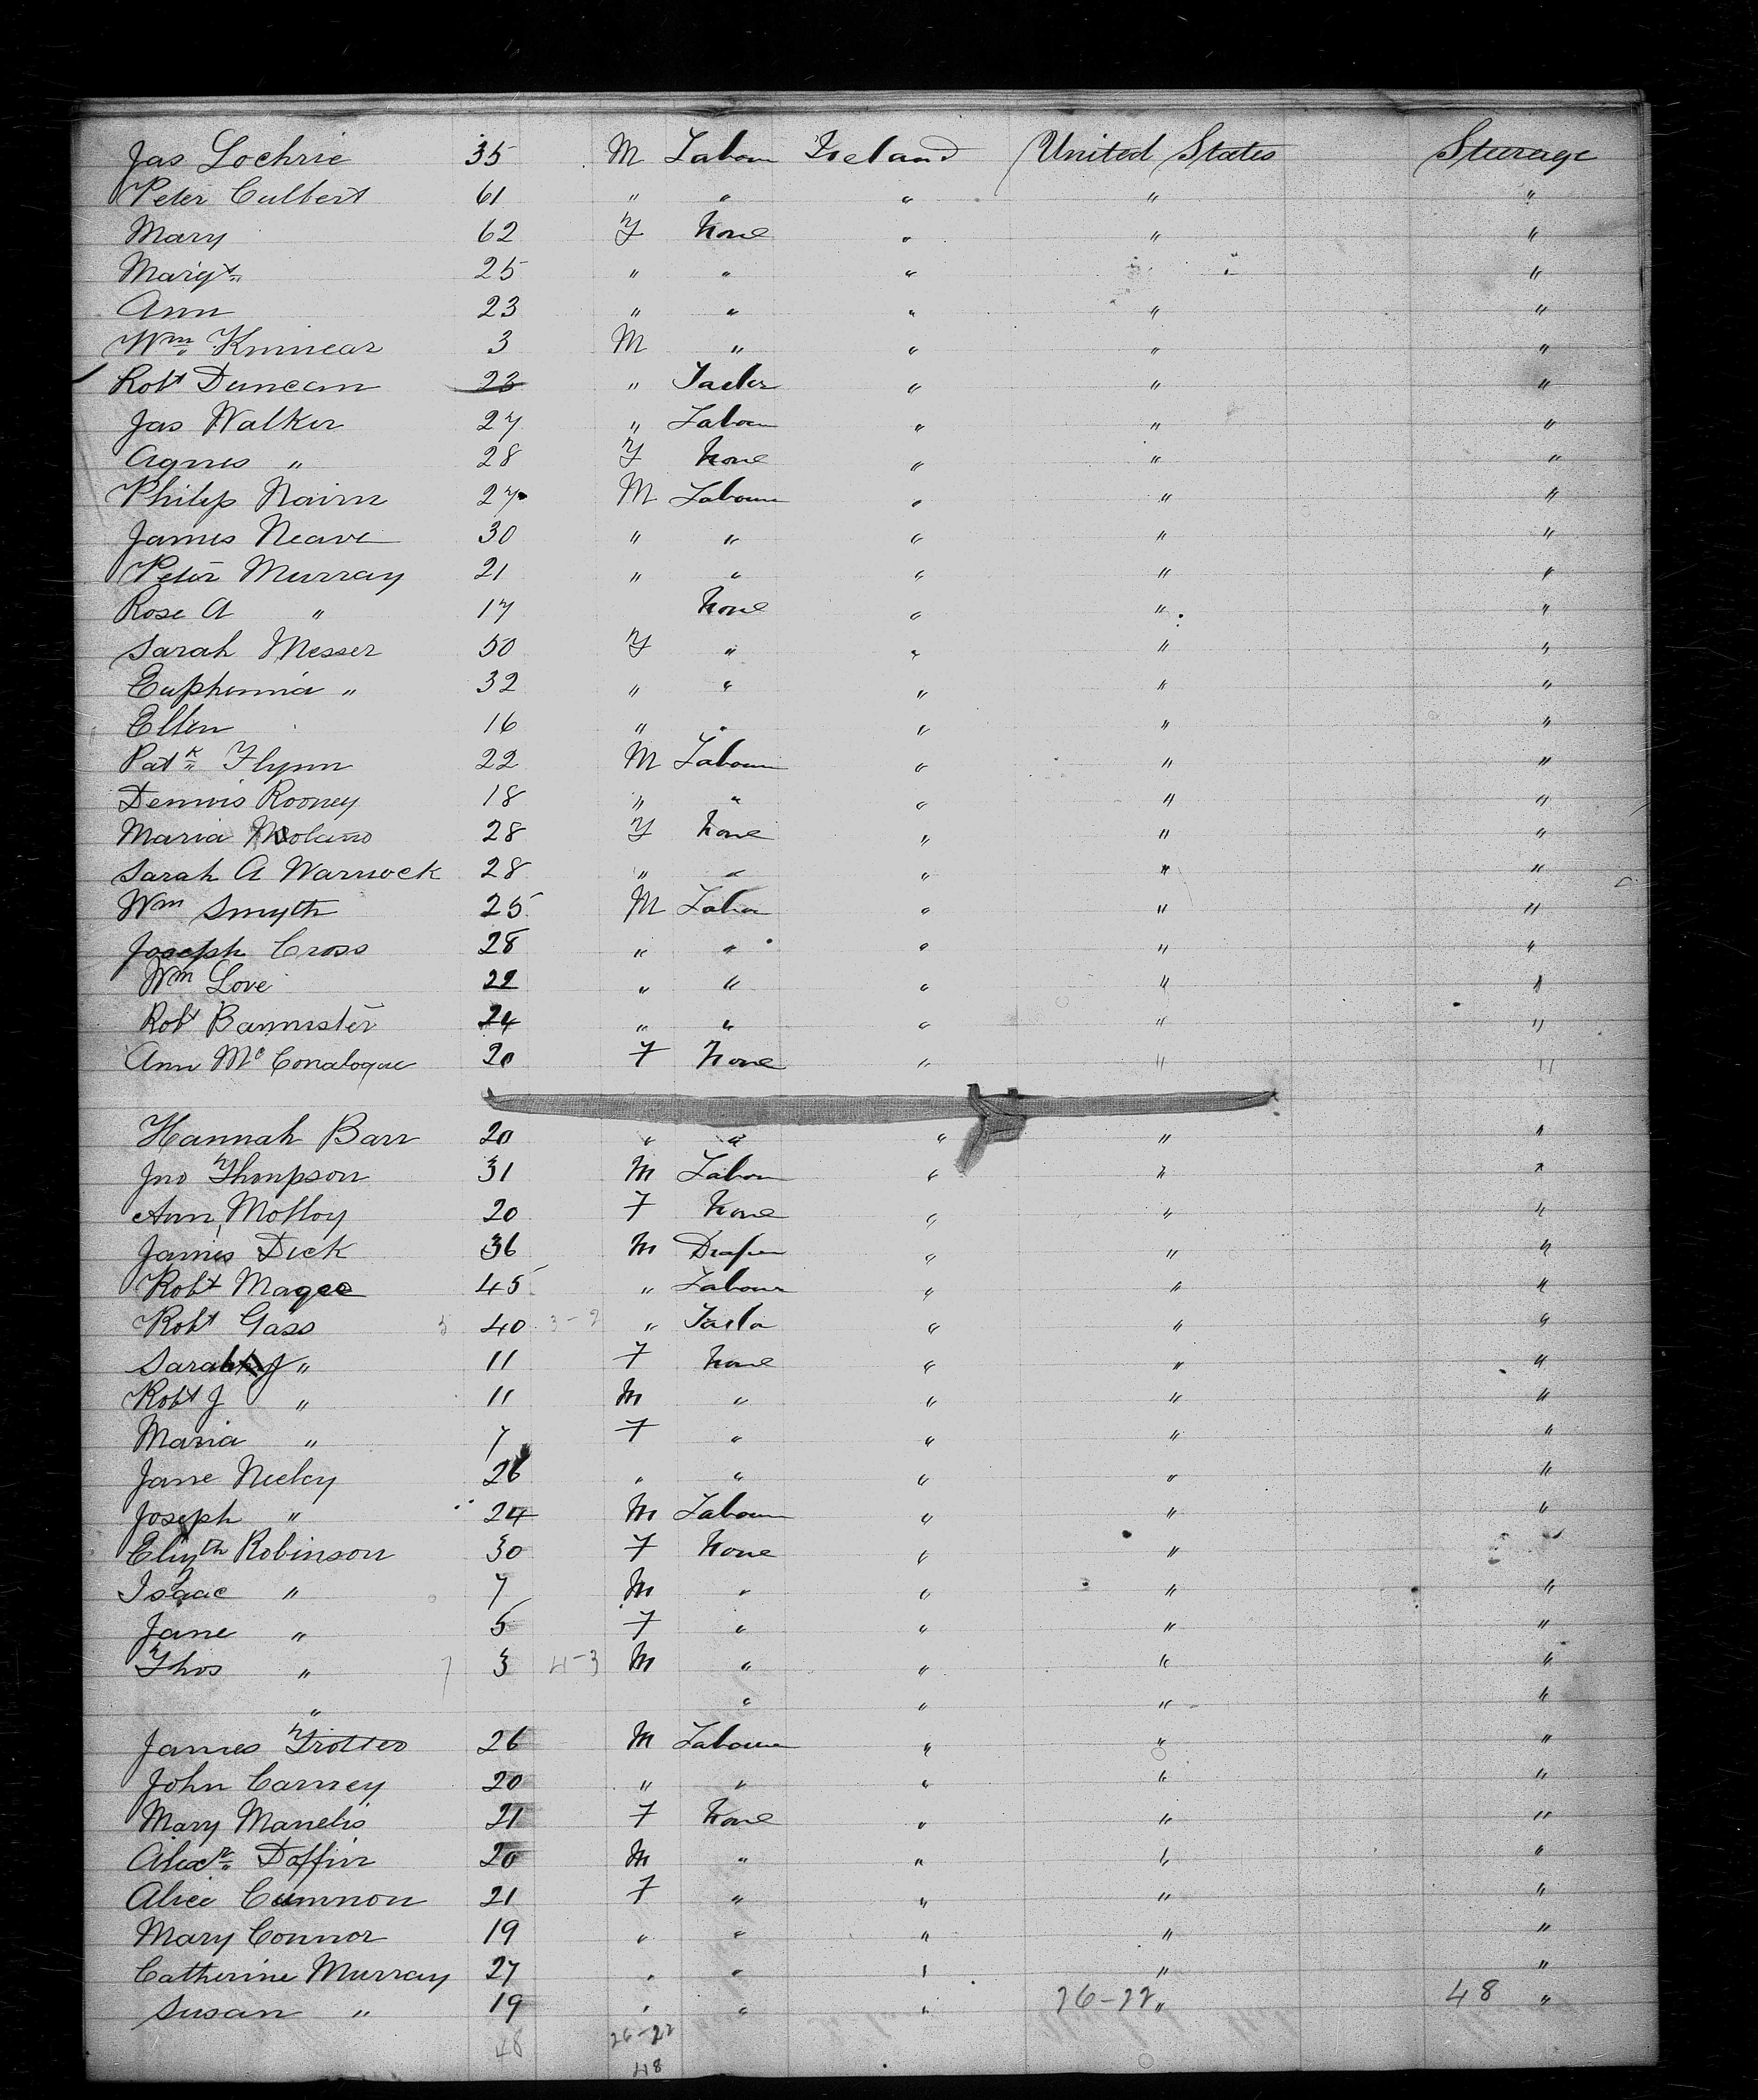 Jas Lochrie 35 M Labour Ireland United States Steerage
Peter Culbert 61 " " " " "
Mary 62 F None " " "
Margt 25 " " " " "
Ann 23 " " " " "
Wm Kinnear 3 M " " " "
Robt Duncan 23 " Tailor " " "
Jas Walker 27 " Labour " " "
Agnes " 28 F None " " "
Philip Nairn 27 M Labour " " "
James Neave 30 " " " " "
Peter Murray 21 " " " " "
Rose A " 17 None " " "
Sarah Messer 50 F " " " "
Euphemia " 32 " " " " "
Ellen 16 " " " " "
Patk Flynn 22 M Labour " " "
Dennis Rooney 18 " " " " "
Maria 28 F None " " "
Sarah A Warnock 28 " " " " "
Wm Smyth 25 M Labour " " "
Joseph Cross 28 " " " " "
Wm Love 22 " " " " "
Robt Bannister 24 " " " " "
Ann McConalogue 20 F None " " "
Hannah Barr 20 " " " " "
Jno Thompson 31 M Labour " " "
Ann Molloy 20 F None " " "
James Dick 36 M Draper " " "
Robt Magee 45 " Labour " " "
Robt Gass 5 40 3-2 " Tailor " " "
Sarah J " 11 F None " " "
Robt J " 11 M " " " "
Maria " 7 F " " " "
Jane Neeley 26 " " " " "
Joseph " 24 M Labour " " "
Elizth Robinson 30 F None " "
Isaac " 7 M " " " "
Jane " 5 F " " " "
Thos " 7 3 4-3 M " " " "
" " " " "
James Trotter 26 M Labour " " "
John Carney 20 " " " " "
Mary Manelis 21 F None " " "
Alexr Doffin 20 M " " " "
Alice Cumnon 21 F " " " "
Mary Connor 19 " " " " "
Catherine Murray 27 " " " " "
Susan " 19 " " " 26-22 " 48 "
48 26-22
48